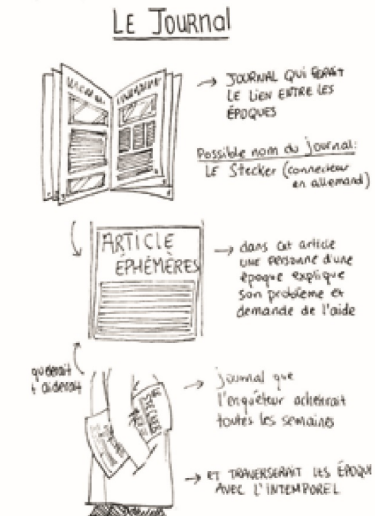 LE JOURNAL
JOURNAL QUI FERAIT
LE LIEN ENTRE LES
ÉPOQUES
Possible nom du journal:
LE Stecker (connecteur
en allemand)
ARTICLE
ÉPHÉMÈRES
dans cet article
une personne d'une
époque explique
son problème et
demande de l'aide
aiderait
journal que
l'enquêteur achèterait
toutes les semaines
ET TRAVERSERAIT LES ÉPOQU
AVEC L'INTEMPOREL